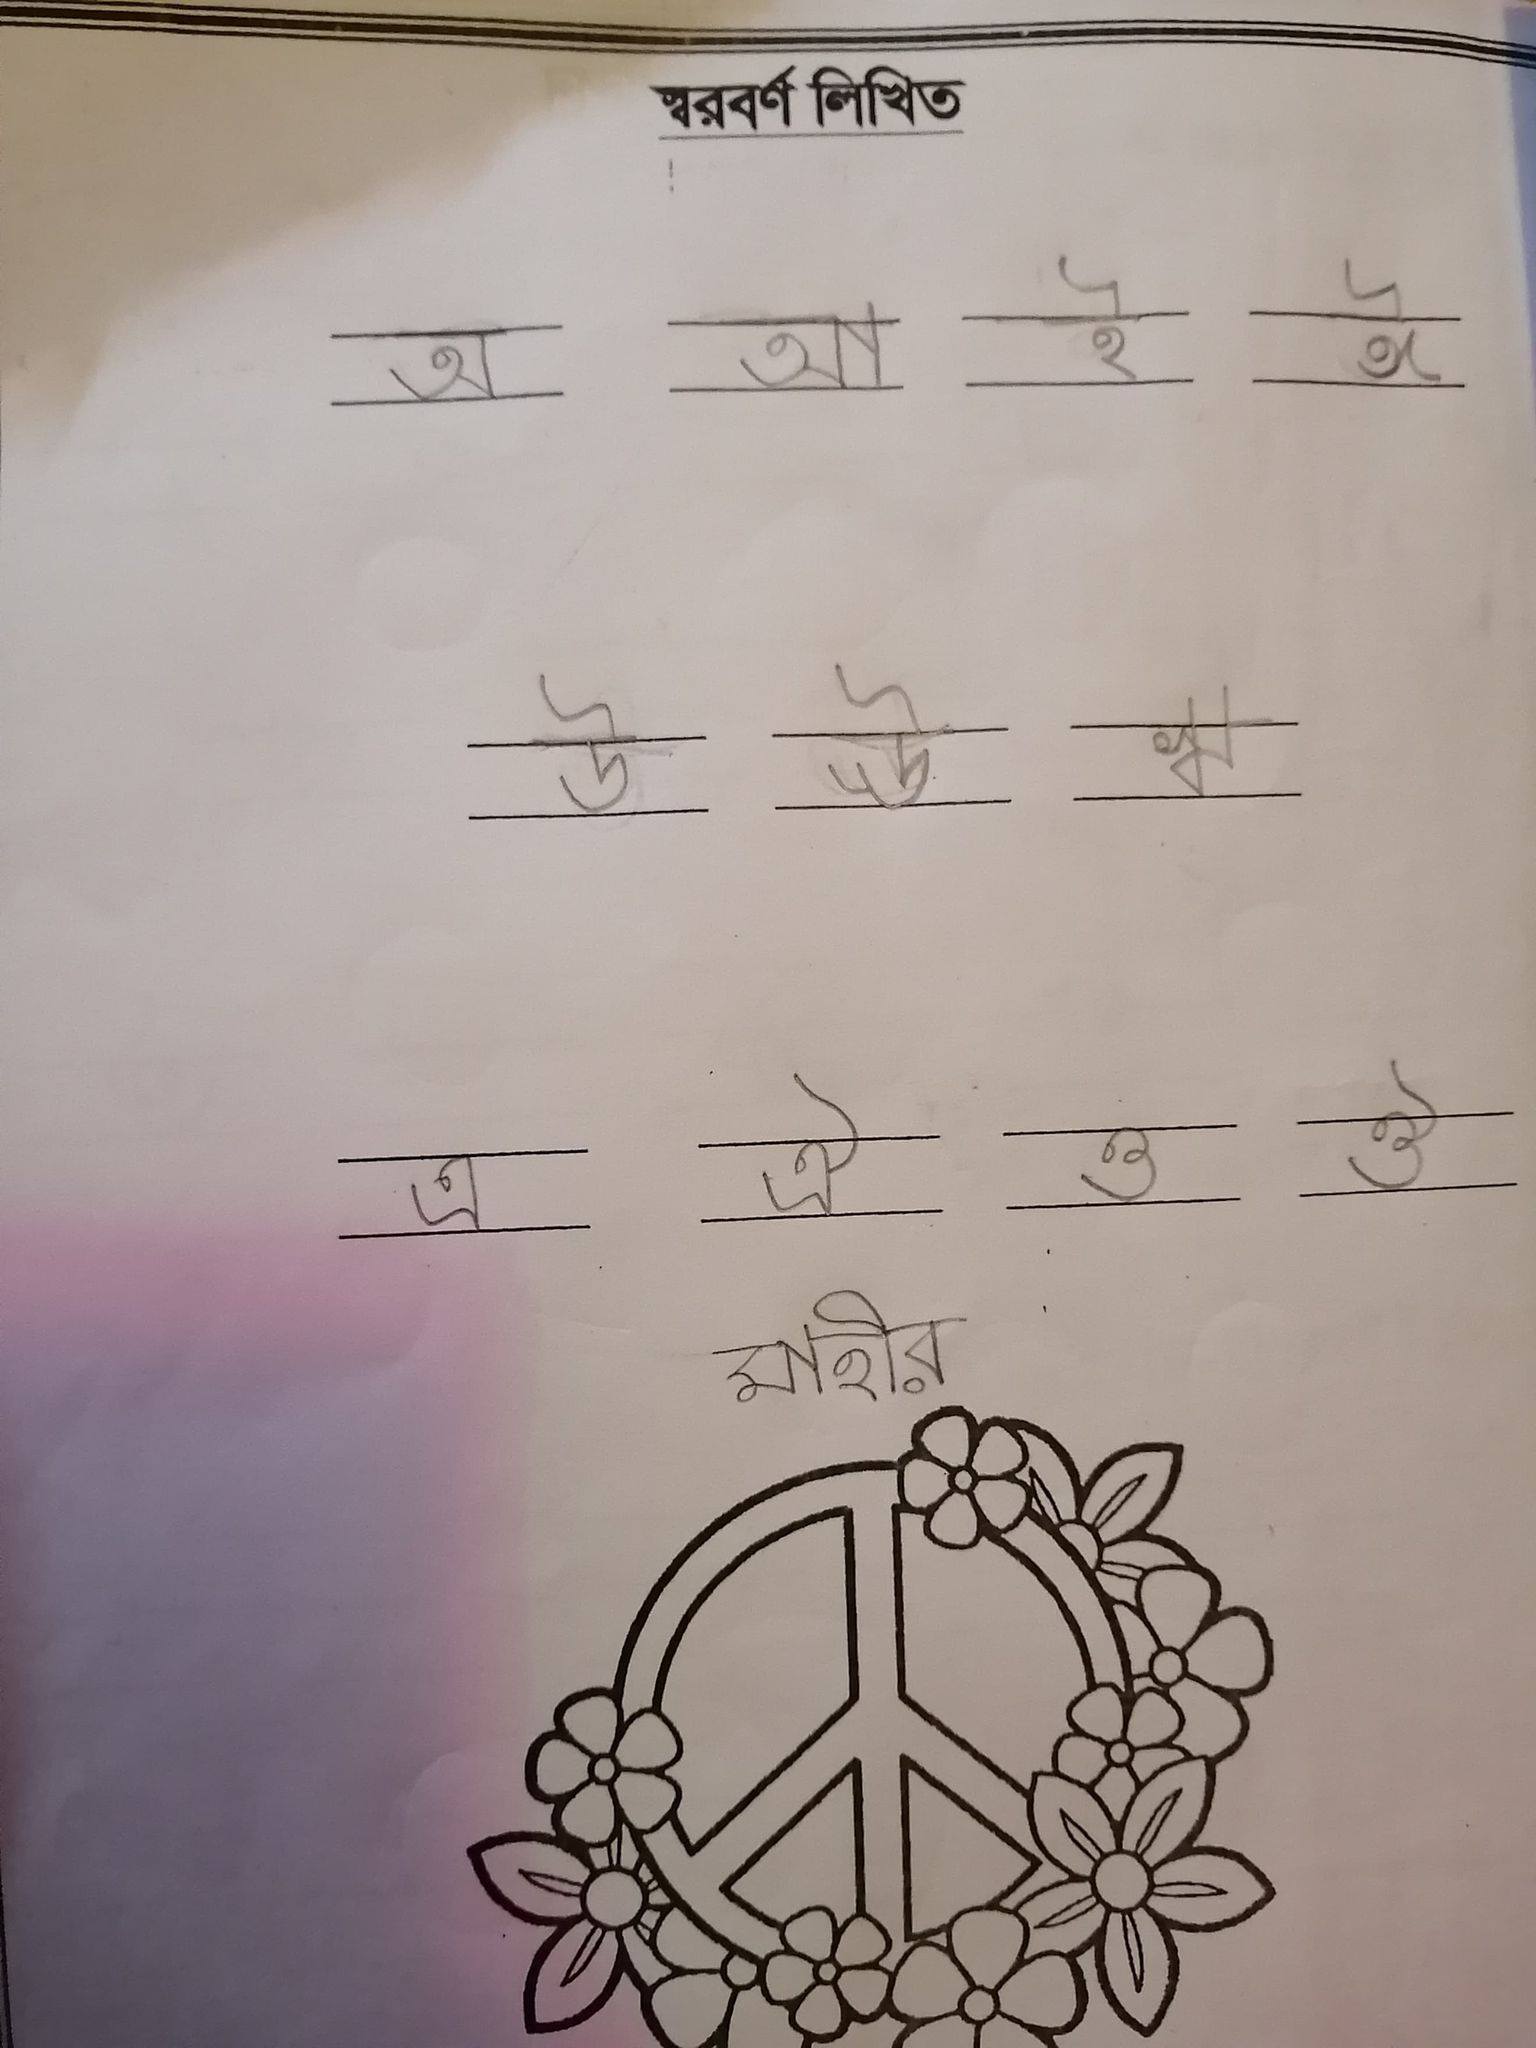 স্বরবর্ণ লিখিত
অ আ ই ঈ
উ ঊ ঋ
এ ঐ ও ঔ
মাহীর